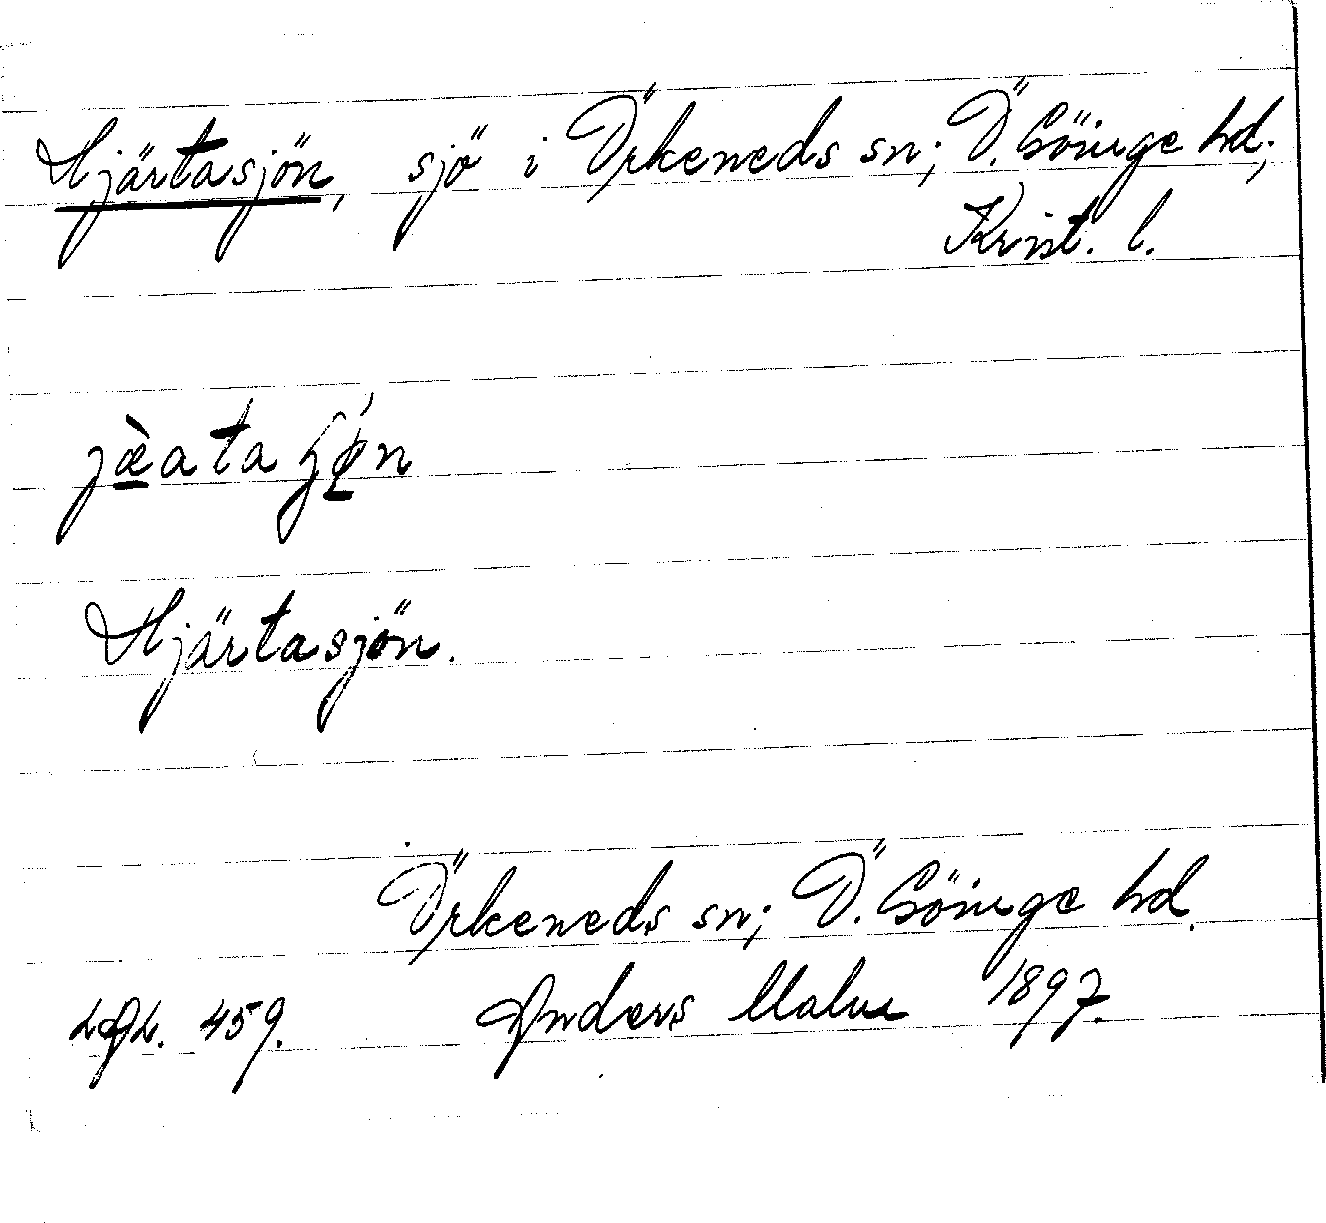 Hjärtasjön, sjö i Örkeneds sn; Ö. Göinge hd;
Krist. l.
Hjärtasjön.
Örkeneds sn; Ö. Göinge hd.
459. Anders Malm 1897.